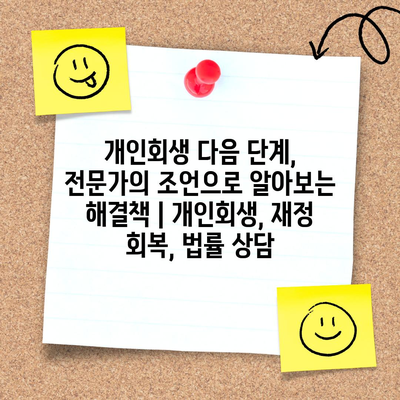 개인회생 다음 단계,
전문가의 조언으로 알아보는
해결책 | 개인회생, 재정
회복, 법률 상담